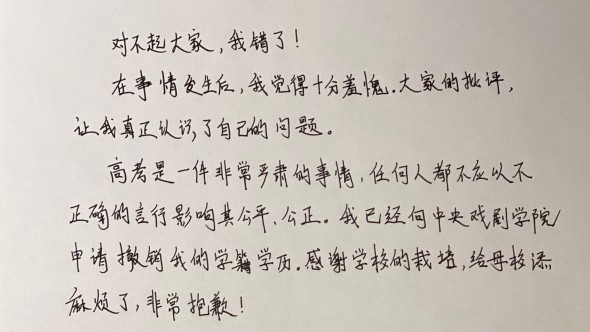 对不起大家，我错了！
在事情发生后，我觉得十分羞愧。大家的批评，
让我真正认识了自己的问题。
高考是一件非常严肃的事情，任何人都不应以不
正确的言行影响其公平、公正。我已经向中央戏剧学院
申请撤销我的学籍学历。感谢学校的栽培，给母校添
麻烦了，非常抱歉！